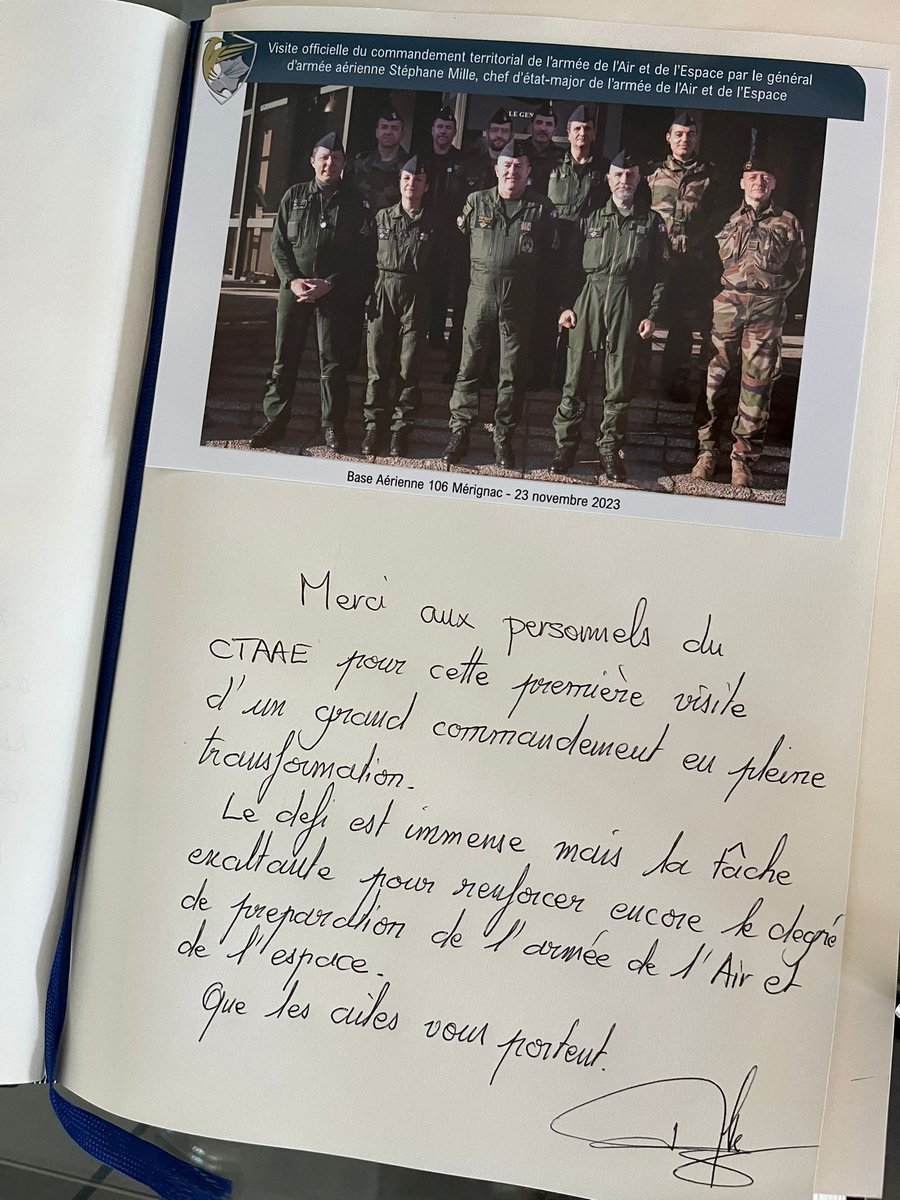 Visite officielle du commandement territorial de l'armée de l'Air et de l'Espace par le général
d'armée aérienne Stéphane Mille, chef d'état-major de l'armée de l'Air et de l'Espace
LE GEN
Base Aérienne 106 Mérignac - 23 novembre 2023
Merci aux personnels du
CTAAE pour cette première visite
d'un grand commandement en pleine
transformation.
Le défi est immense mais la tâche
exaltante pour renforcer encore le degré
de preparation de l'armée de l'Air et
de l'espace.
Que les ailes vous portent.